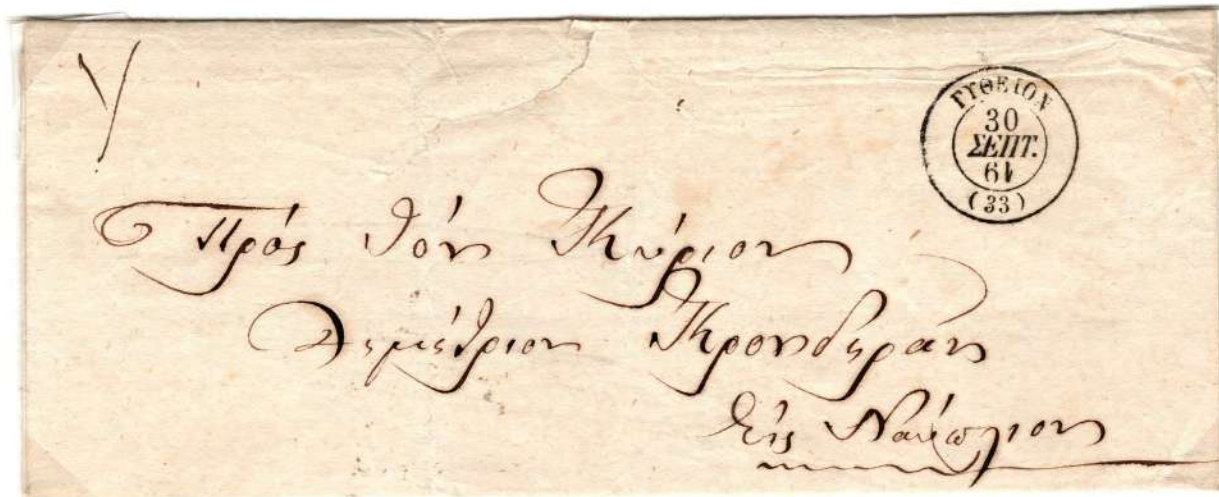 ΓΥΘΕΙΟΝ
30
ΣΕΠΤ.
61
(33)
Πρός τόν Κύριον
Δημήτριον
Εἰς Ναύπλιον